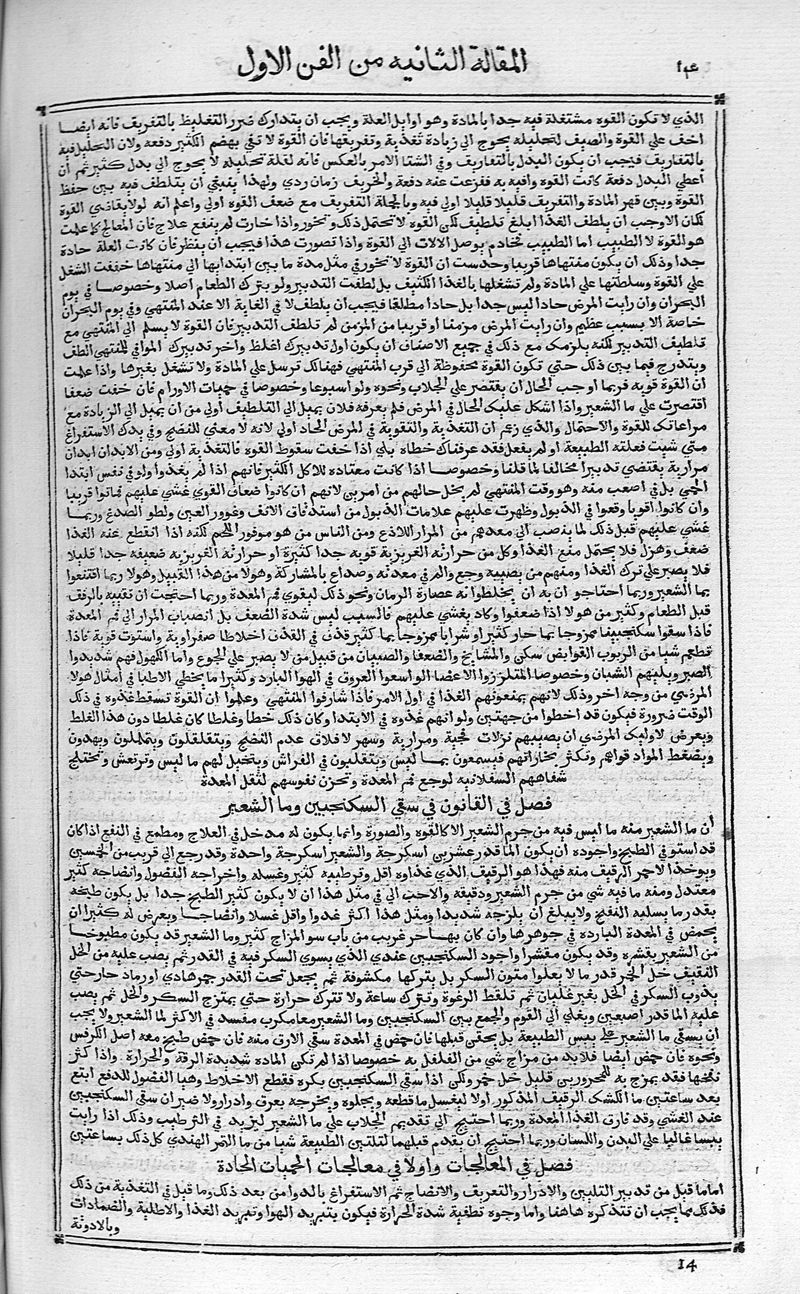 المقالة الثانيه من الفن الاول
الذي لا تكون القوه مشتغلة فيه جدا بالمادة وهو اوايل العلة ويجب ان يتدارك ضرر التغليظ بالتفريف فانه ايضا
اخف علي القوة والصيف لتحليله يحوج الي زيادة تغذية وتفريقها فان القوة لا تفي بهضم الكثير دفعه ولان التحليل فيه
بالتفاريف فيجب ان يكون البدل بالتفاريف وفي الشتا الامر بالعكس فانه لقلة تحليله لا يحوج الي بدل كثير ثم ان
اعطي البدل دفعة كانت القوة وافيه به ففزعت عنه دفعة والخريف زمان ردي ولهذا ينبغي ان يتلطف فيه بين حفظ
القوة وبين قهر المادة والتفريف قليلا قليلا اولي فيه وبالجملة التفريف مع ضعف القوه اولي واعلم انه لولا تقاضي القوة
لكان الاوجب ان يلطف الغذا ابلغ تلطيف لكن القوه لا تحتمل ذلك وتخور واذا خارت لم ينفع علاج فان المعالج كما علمت
هو القوة لا الطبيب اما الطبيب فخادم يوصل الالات الي القوة واذا تصورت هذا فيجب ان ينظر فان كانت العلة حادة
جدا وذلك ان يكون منتهاها قريبا وحدست ان القوة لا تخور في مثل مدة ما بين ابتدايها الي منتهاها خففت الشغل
علي القوة وسلطتها علي المادة ولم تشغلها بالغذا الكثيف بل لطفت التدبير ولو بترك الطعام اصلا وخصوصا في يوم
البحران وان رايت المرض حادا ليس جدا بل حادا مطلقا فيجب ان يلطف لا في الغاية الا عند المنتهي وفي يوم البحران
خاصة الا بسبب عظيم وان رايت المرض مزمنا او قريبا من المزمن لم تلطف التدبير فان القوة لا يسلم الي المنتهي مع
تلطيف التدبير لكنه يلزمك مع ذلك في جميع الاصناف ان يكون اول تدبيرك اغلظ واخر تدبيرك الموافي للمنتهي الطف
ويتدرج فيما بين ذلك حتي تكون القوة محفوظة الي قرب المنتهي فهنالك ترسل علي المادة ولا تشغل بغيرها واذا علمت
ان القوة قويه فربما اوجب الحال ان يقتصر علي الجلاب ونحوه ولو اسبوعا وخصوصا في حميات الاورام فان خفت ضعفا
اقتصرت علي ما الشعير واذا اشكل عليك الحال في المرض فلم يعرفه فلان يميل الي التلطيف اولي من ان يميل الي الزيادة مع
مراعاتك للقوة والاحتمال والذي زعم ان التغذية والتقوية في المرض الحاد اولي لانه لا معني للنضج وفي يدك الاستفراغ
متي شيت فعلته الطبيعة او لم يفعل فقد عرفناك خطاه بلي اذا خفت سقوط القوه فالتغذية اولي ومن الابدان ابدان
مرارية يقتضي تدبيرا مخالفا لما قلنا وخصوصا اذا كانت معتاده للاكل الكثير فانهم اذا لم يغذوا ولو في نفس ابتدا
الحمي بل في اصعب منه وهو وقت المنتهي لم يخل حالهم من امرين لانهم ان كانوا ضعاف القوي غشي عليهم فماتوا قريبا
وان كانوا اقويا وقعوا في الذبول وظهرت عليهم علامات الذبول من استدقاق الانف وغوور العين ولطو الصدغ وربما
غشي عليهم قبل ذلك لما ينصب الي معدهم من المرار اللاذع ومن الناس من هو موفور اللحم لكنه اذا انقطع عنه الغذا
ضعف وهزل فلا يحتمل منع الغذا وكل من حرارته الغريزية قويه جدا كثيرة او حرارته الغريزيه ضعيفه جدا قليلا
فلا يصبر علي ترك الغذا ومنهم من يصيبه وجع والم في معدته وصداع بالمشاركة وهولا من هذا القبيل وهولا ربما اقتنعوا
بما الشعير وربما احتاجو ان به ان يخلطوا انه عصارة الرمان ونحو ذلك ليقوي فم المعدة وربما احتجت ان تقيه بالرفف
قبل الطعام وكثير من هولا اذا ضعفوا وكاد يغشي عليهم فالسبب ليس شدة الضعف بل انصباب المرار الي فم المعدة
فاذا سقوا سكنجبينا ممزوجا بما حار كثير او شرابا ممزوجا بما كثير قذف في القذف اخلاطا صفراوية واستوت قوته فاذا
تطعم شيا من الربوب القوابض سكن والمشايخ والضعفا والصبيان من قبيل من لا يصبر علي الجوع واما الكهول فهم شديدوا
الصبر ويليهم الشبان وخصوصا المتلززوا الاعضا الواسعوا العروق في الهوا البارد وكثيرا ما يخطي الاطبا في امثال هولا
المرضي من وجه اخر وذلك لانهم يمنعونهم الغذا في اول الامر فاذا شارفوا المنتهي وعلموا ان القوة تسقط غذوه في ذلك
الوقت ضرورة فيكون قد اخطوا من جهتين ولو انهم غذوه في الابتدا وكان ذلك خطأ وغلطا كان غلطا دون هذا الغلط
ويعرض لاوليك المرضي ان يصيبهم نزلات فجية ومرارية وسهر لاقلاق عدم النضج ويتقلقلون ويتململون ويهذون
ويضغط المواد قواهم وتكثر بخاراتهم فيسمعون بما ليس ويتقلبون في الفراش ويتخيل لهم ما ليس وترتعش وتختلج
شفاههم السفلانيه لوجع فم المعدة وتحزن نفوسهم لثقل المعدة
فصل في القانون في سقي السكنجبين وما الشعير
ان ما الشعير منه ما ليس فيه من جرم الشعير الا كالقوه والصورة وانما يكون له مدخل في العلاج ومطمع في النفع اذا كان
قد استوفي الطبخ واجوده ان يكون الما قدر عشرين اسكرجة والشعير اسكرجة واحدة وقد رجع الي قريب من الخمسين
ويوخذ الاحمر الرقيف منه فهذا هو الرقيف الذي غذاوه اقل وترطيبه كثير وغسله واخراجه الفضول وانضاجه كثير
معتدل ومنه ما فيه شي من جرم الشعير ودقيقه والاحب الي في مثل هذا ان لا يكون كثير الطبخ جدا بل يكون طبخه
بقدر ما يسلبه النفخ ولا يبلغ ان يلزجه شديدا ومثل هذا اكثر غذوا واقل غسلا وانضاجا ويعرض له كثيرا ان
يحمض في المعدة البارده في جوهرها وان كان بها حر غريب من باب سو المزاج كثير وما الشعير قد يكون مطبوخا
من الشعير بقشره وقد يكون مقشرا واجود السكنجبين عندي الذي يسوي السكر فيه في القدر ثم يصب عليه من الخل
الثقيف خل الخمر قدر ما لا يعلوا متون السكر بل يتركها مكشوفة ثم يجعل تحت القدر جمر هادي او رماد حار حتي
يذوب السكر في الخل بغير غليان ثم تلقط الرغوة وتترك ساعة ولا تترك حرارة حتي يمتزج السكر والخل ثم يصب
عليه الما قدر اصبعين ويغلي الي القوم والجمع بين السكنجبين وما الشعير معا مكرب مفسد في الاكثر لما الشعير ولا يجب
ان يسقي ما الشعير علي يبس الطبيعة بل يحقن قبلها فان حمض في المعدة سقي الارق منه فان حمض طبخ معه اصل الكرفس
ونحوه فان حمض ايضا فلابد من مزاج شي من الفلفل به خصوصا اذا لم تكن المادة شديدة الرقة والحرارة واذا كثر
نفخها فقد يمزج به للمحرورين قليل خل خمر ولكن اذا سقي السكنجبين بكره فقطع الاخلاط وهيا الفضول للدفع اتبع
بعد ساعتين ما الكشك الرقيف المذكور اولا ليغسل ما قطعه ويجلوه ويخرجه بعرق وادرار ولا ضير ان سقي السكنجبين
عند العشي وقد فارق الغذا المعدة وربما احتيج الي تقديم الجلاب علي ما الشعير ليزيد في الترطيب وذلك اذا رايت
يبسا غالبا علي البدن واللسان وربما احتيج ان يقدم قبلهما لتليين الطبيعة شيا من ما التمر الهندي كل ذلك بساعتين
فصل في المعالجات واولا في معالجات الحميات الحادة
اما ما قيل من تدبير التليين والادرار والتعريف والانضاج ثم الاستفراغ بالدوا من بعد ذلك وما قيل في التغذية من ذلك
فذلك مما يجب ان تتذكره هاهنا واما وجوه تطفية شدة الحرارة فيكون بتبريد الهوا وتبريد الغذا والاطلية والضمادات
وبالادوية
14